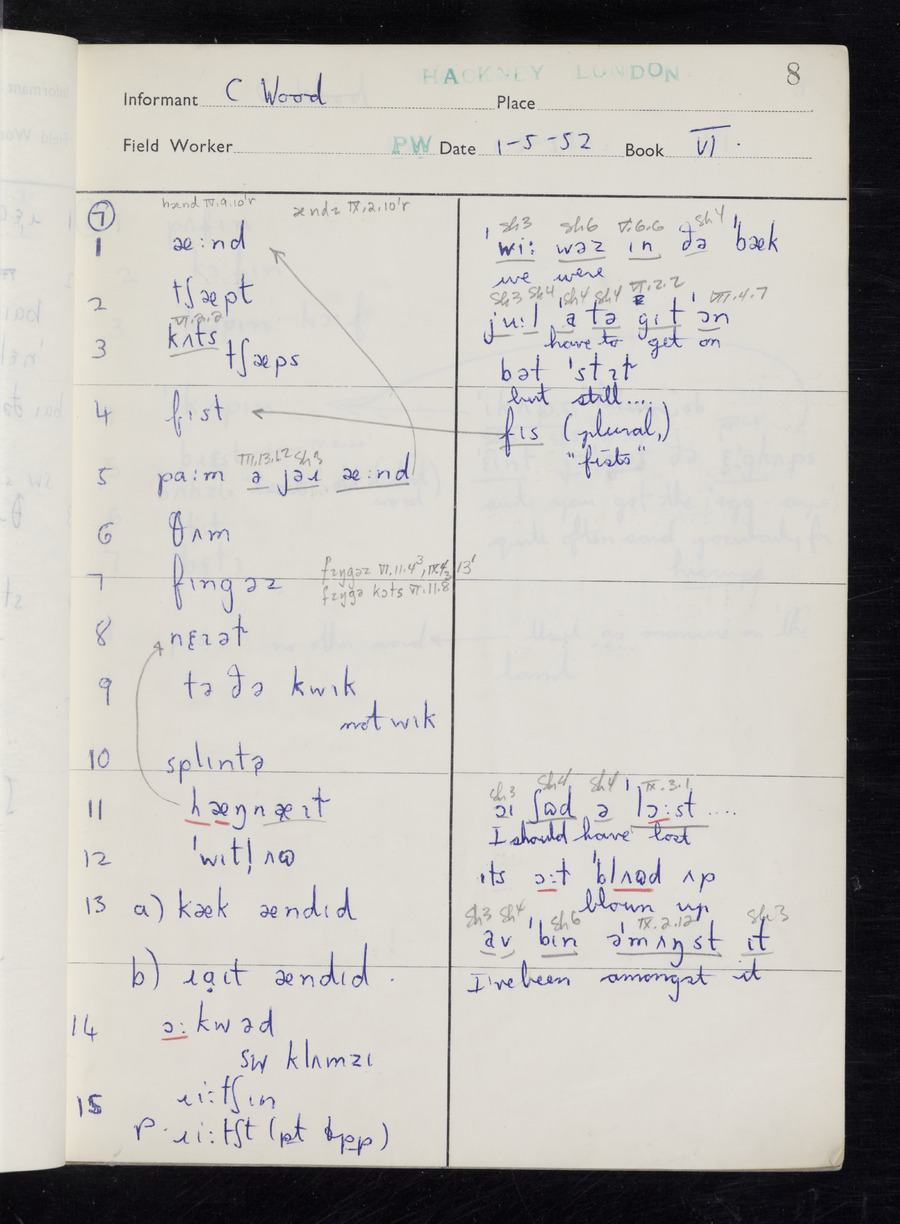 HACKNEY LONDON
8
Informant C Wood Place
Field Worker PW Date 1-5-52 Book VI.
7
hænd IV.9.10'r ændz IX.2.10'r
1 æ:nd
2 tʃæpt
VI.2.2
3 kʌts
tʃæps
4 fist
VII.13.12 Sh3
5 pa:m ə jəɪ æ:nd
6 θʌm
7 fingəz
fɪŋgəz VI.11.4³, IX.4/3 13'
fɪŋgə kɔts VI.11.8
8 nɛɪət
9 tə ðə kwɪk
not wik
10 splɪntə
11 hæŋnæɪt
12 'witl̩ʌɷ
13 a) kæk ændɪd
b) ɹɑ̣ɪt ændɪd.
14 ɔ:kwəd
sw klʌmzɪ
15 ɹi:tʃɪn
P. ɹi:tʃt (pt & pp)
sh3 sh6 V.6.6 sh4
'wi: wəz ɪn ðə 'bæk
we were
sh3 sh4 'sh4 sh4 VI.2.2 VII.4.7
ju:l 'a tə gɪt 'ɔn
have to get on
bət 'stɪt
but still....
fɪs (plural,)
"fists"
sh3 sh4 sh4 IX.3.1
əɪ ʃɷd ə 'lɔ:st ....
I should have lost
ɪts ɔ:t 'blʌɷd ʌp
blown up
sh3 sh4 sh6 IX.2.12 sh3
av 'bin ə'mʌŋst ɪt
I've been amongst it